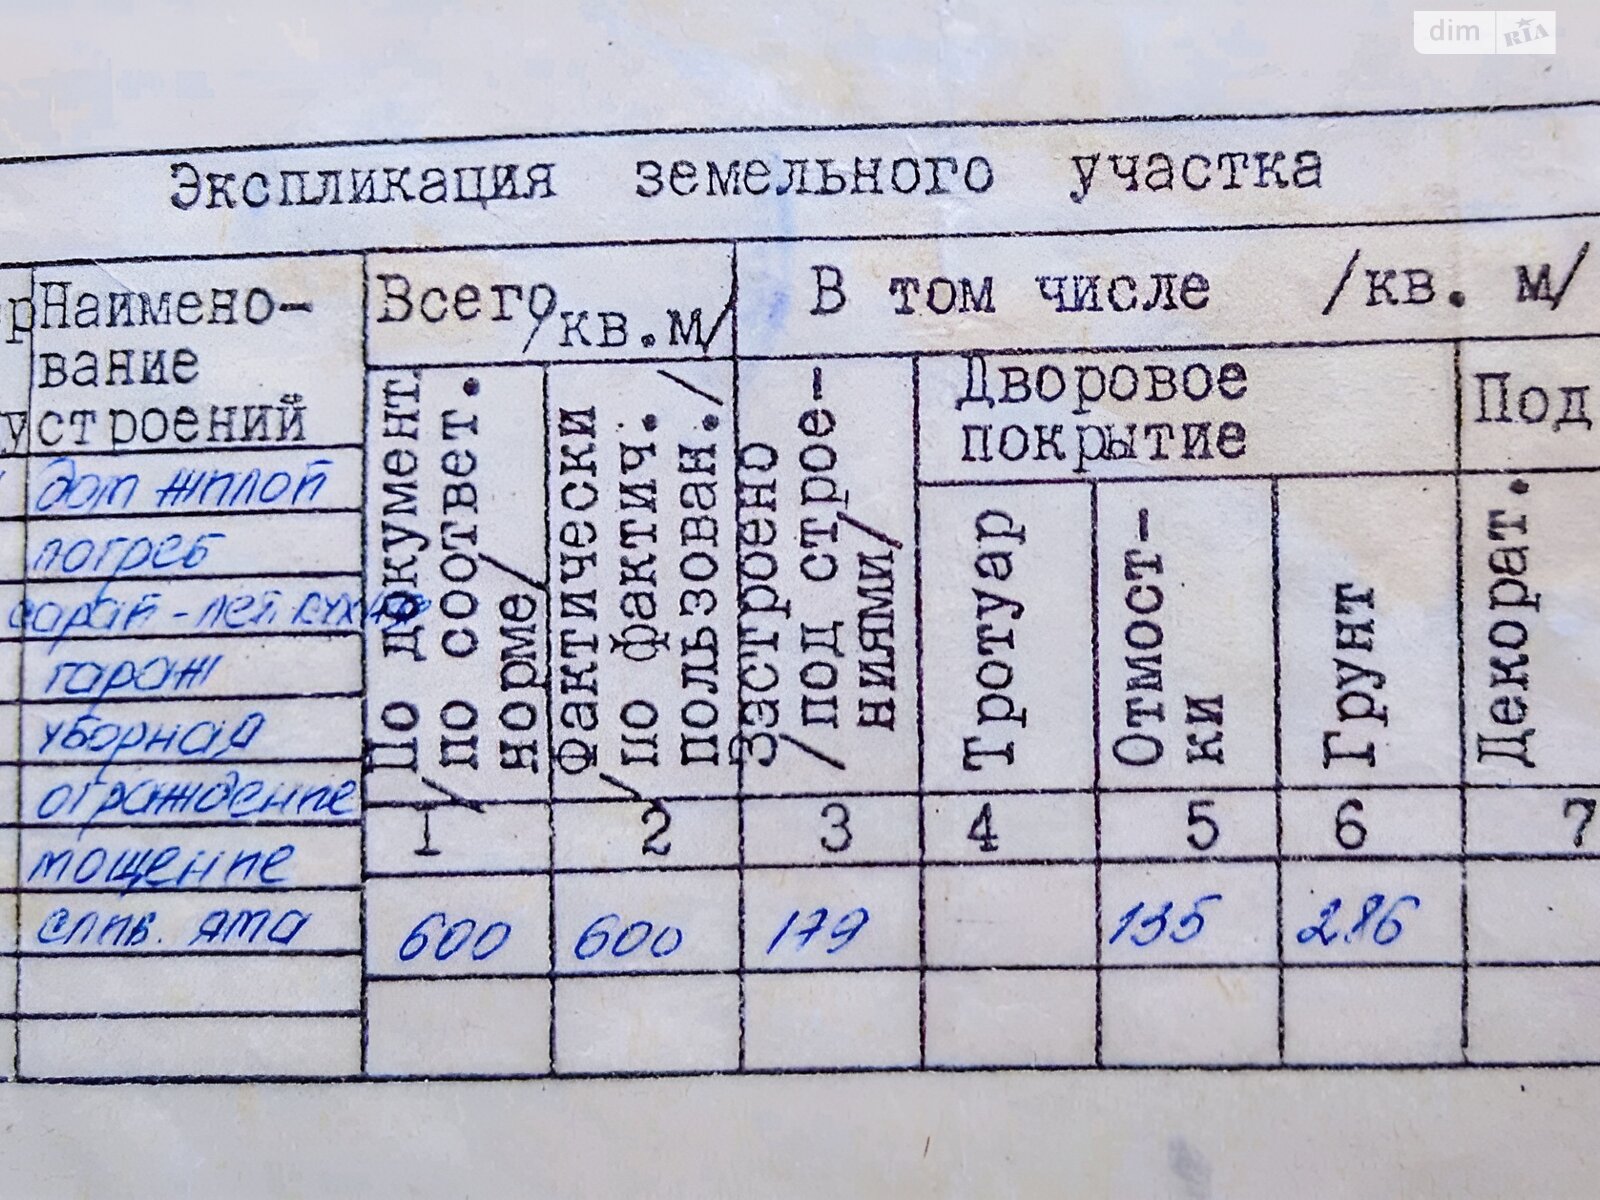 dim RIA
Экспликация земельного участка
Наимено-
вание
строений
Всего /кв.м/
В том числе /кв. м/
По документ.
/по соответ.
норме/
Фактически
/по фактич.
пользован./
Застроено
/под строе-
ниями/
Дворовое
покрытие
Под
Тротуар
Отмост-
ки
Грунт
Декорат.
дом жилой
погреб
сарай - лет. кухня
гараж
уборная
ограждение
мощение
слив. яма
1 2 3 4 5 6 7
600 600 179 135 286